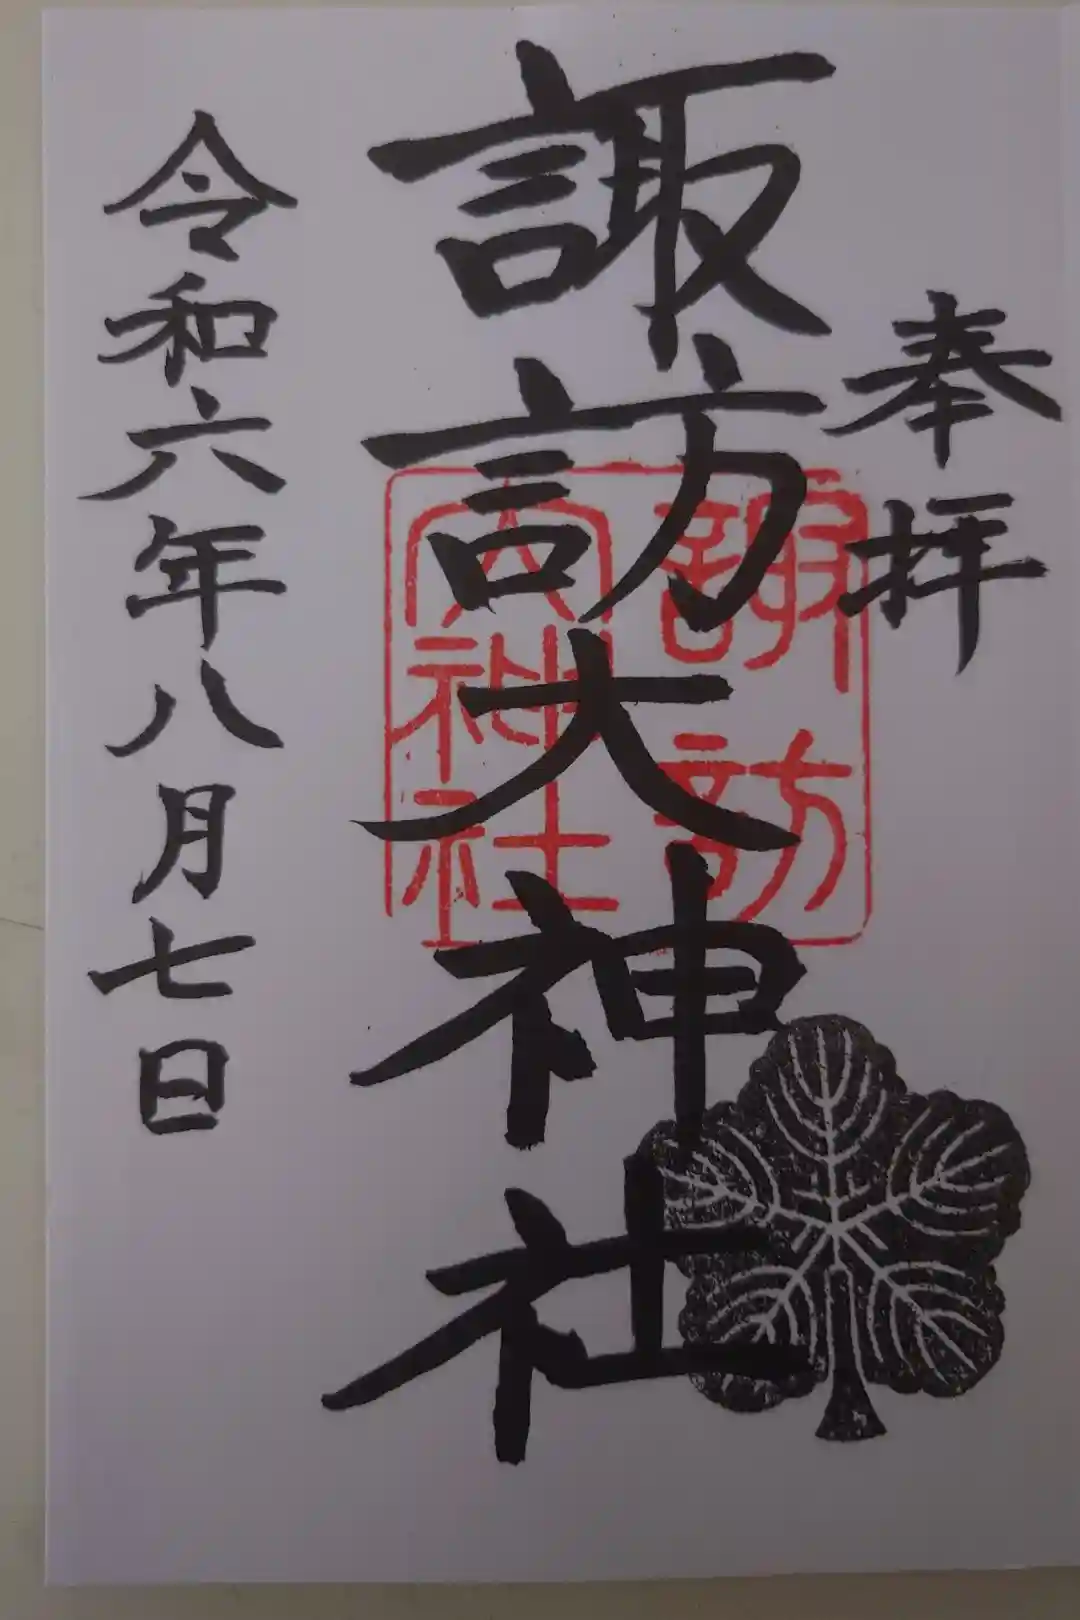 奉拝
諏訪大神社
諏訪
大神社
令和六年八月七日